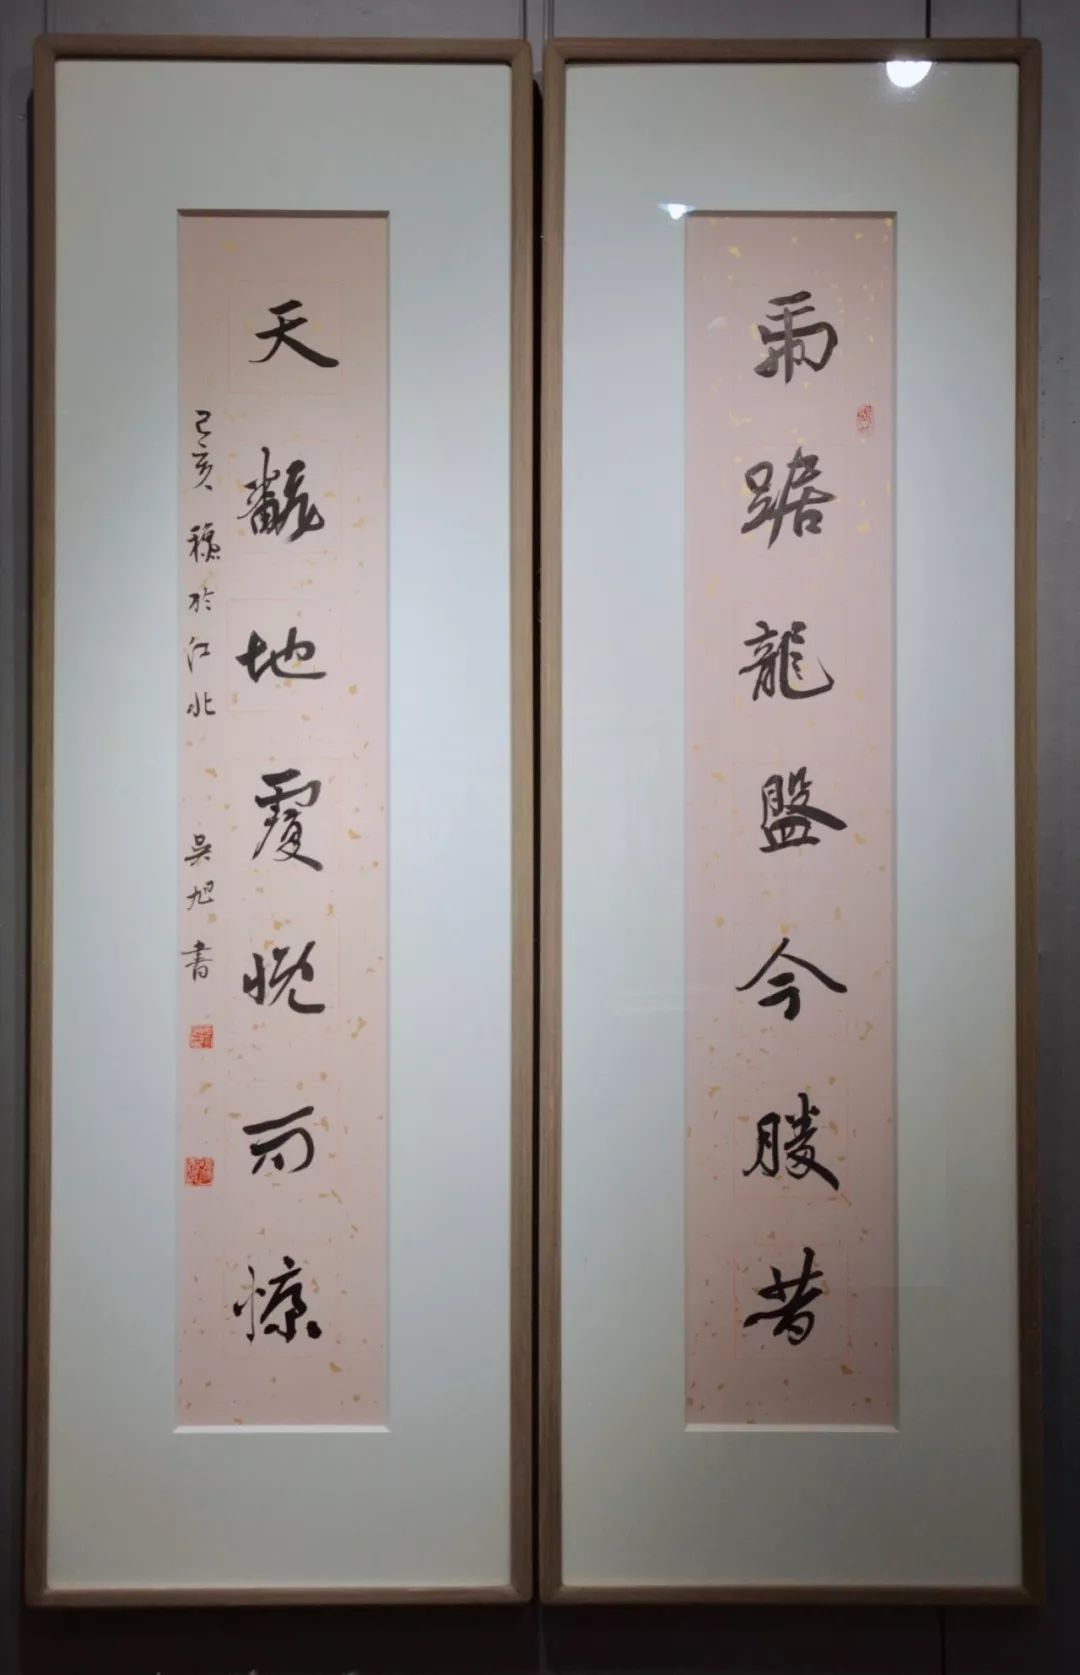 虎踞龍盤今勝昔
天飜地覆慨而慷
己亥穐於江北吳旭書